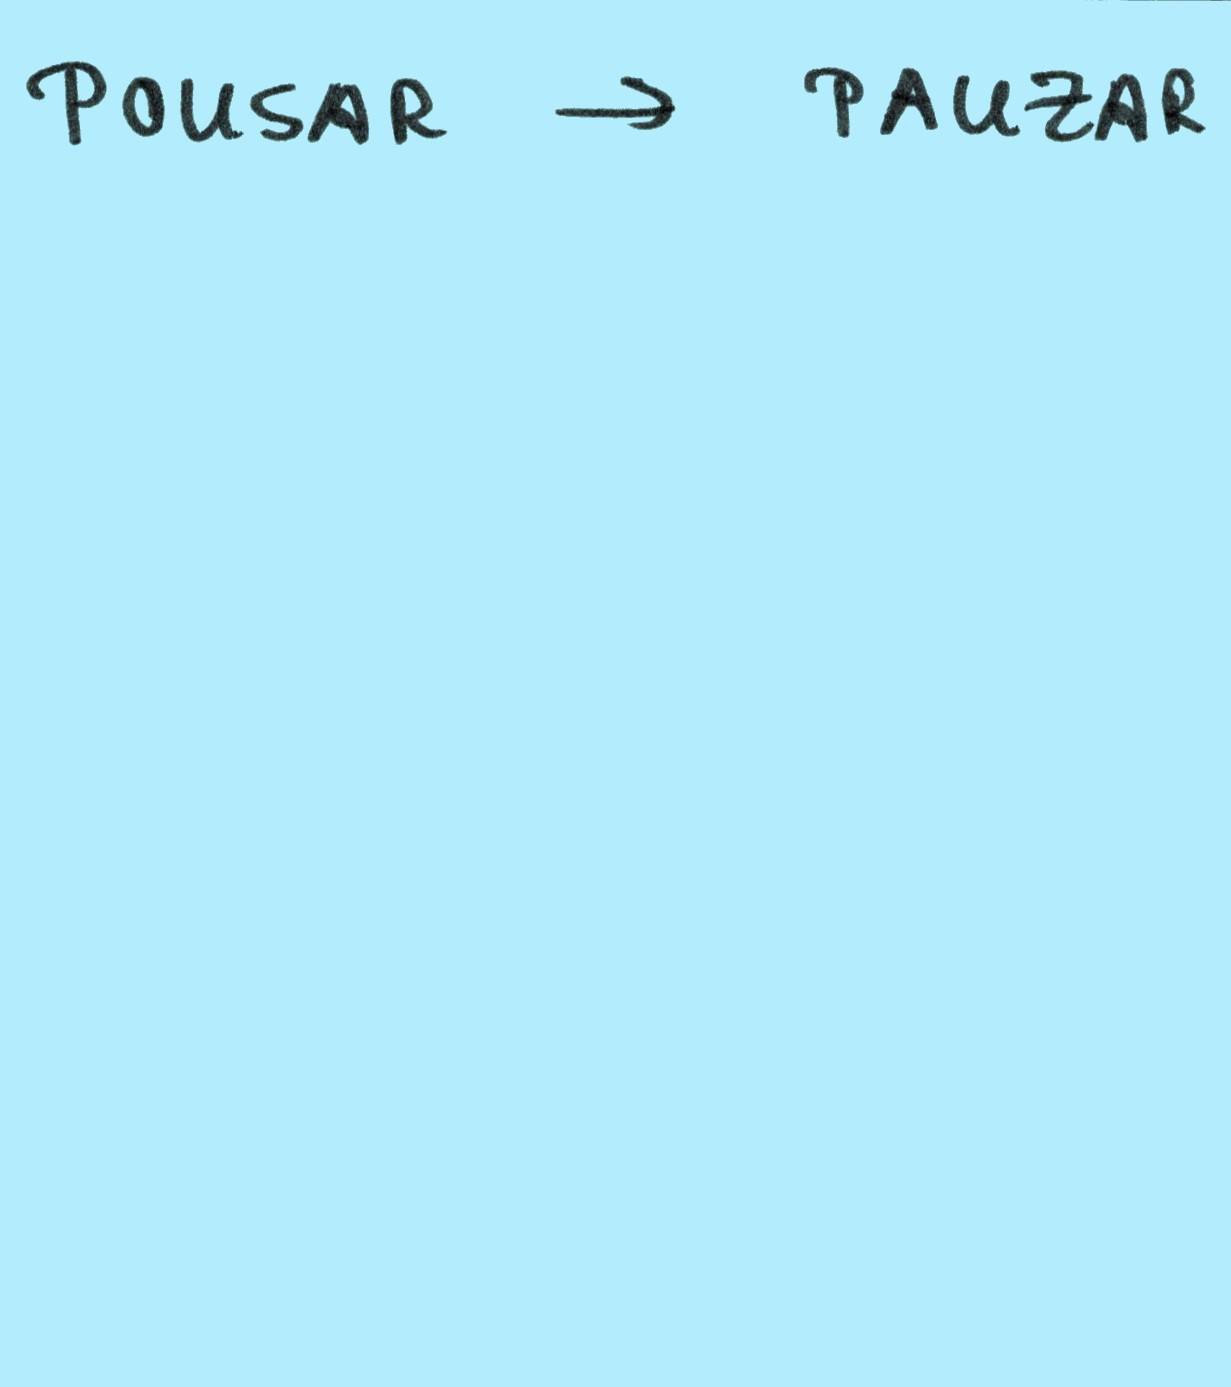 POUSAR → PAUZAR